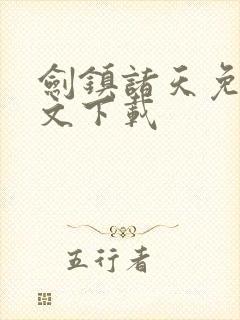 劍鎮諸天免
文下載
五行者